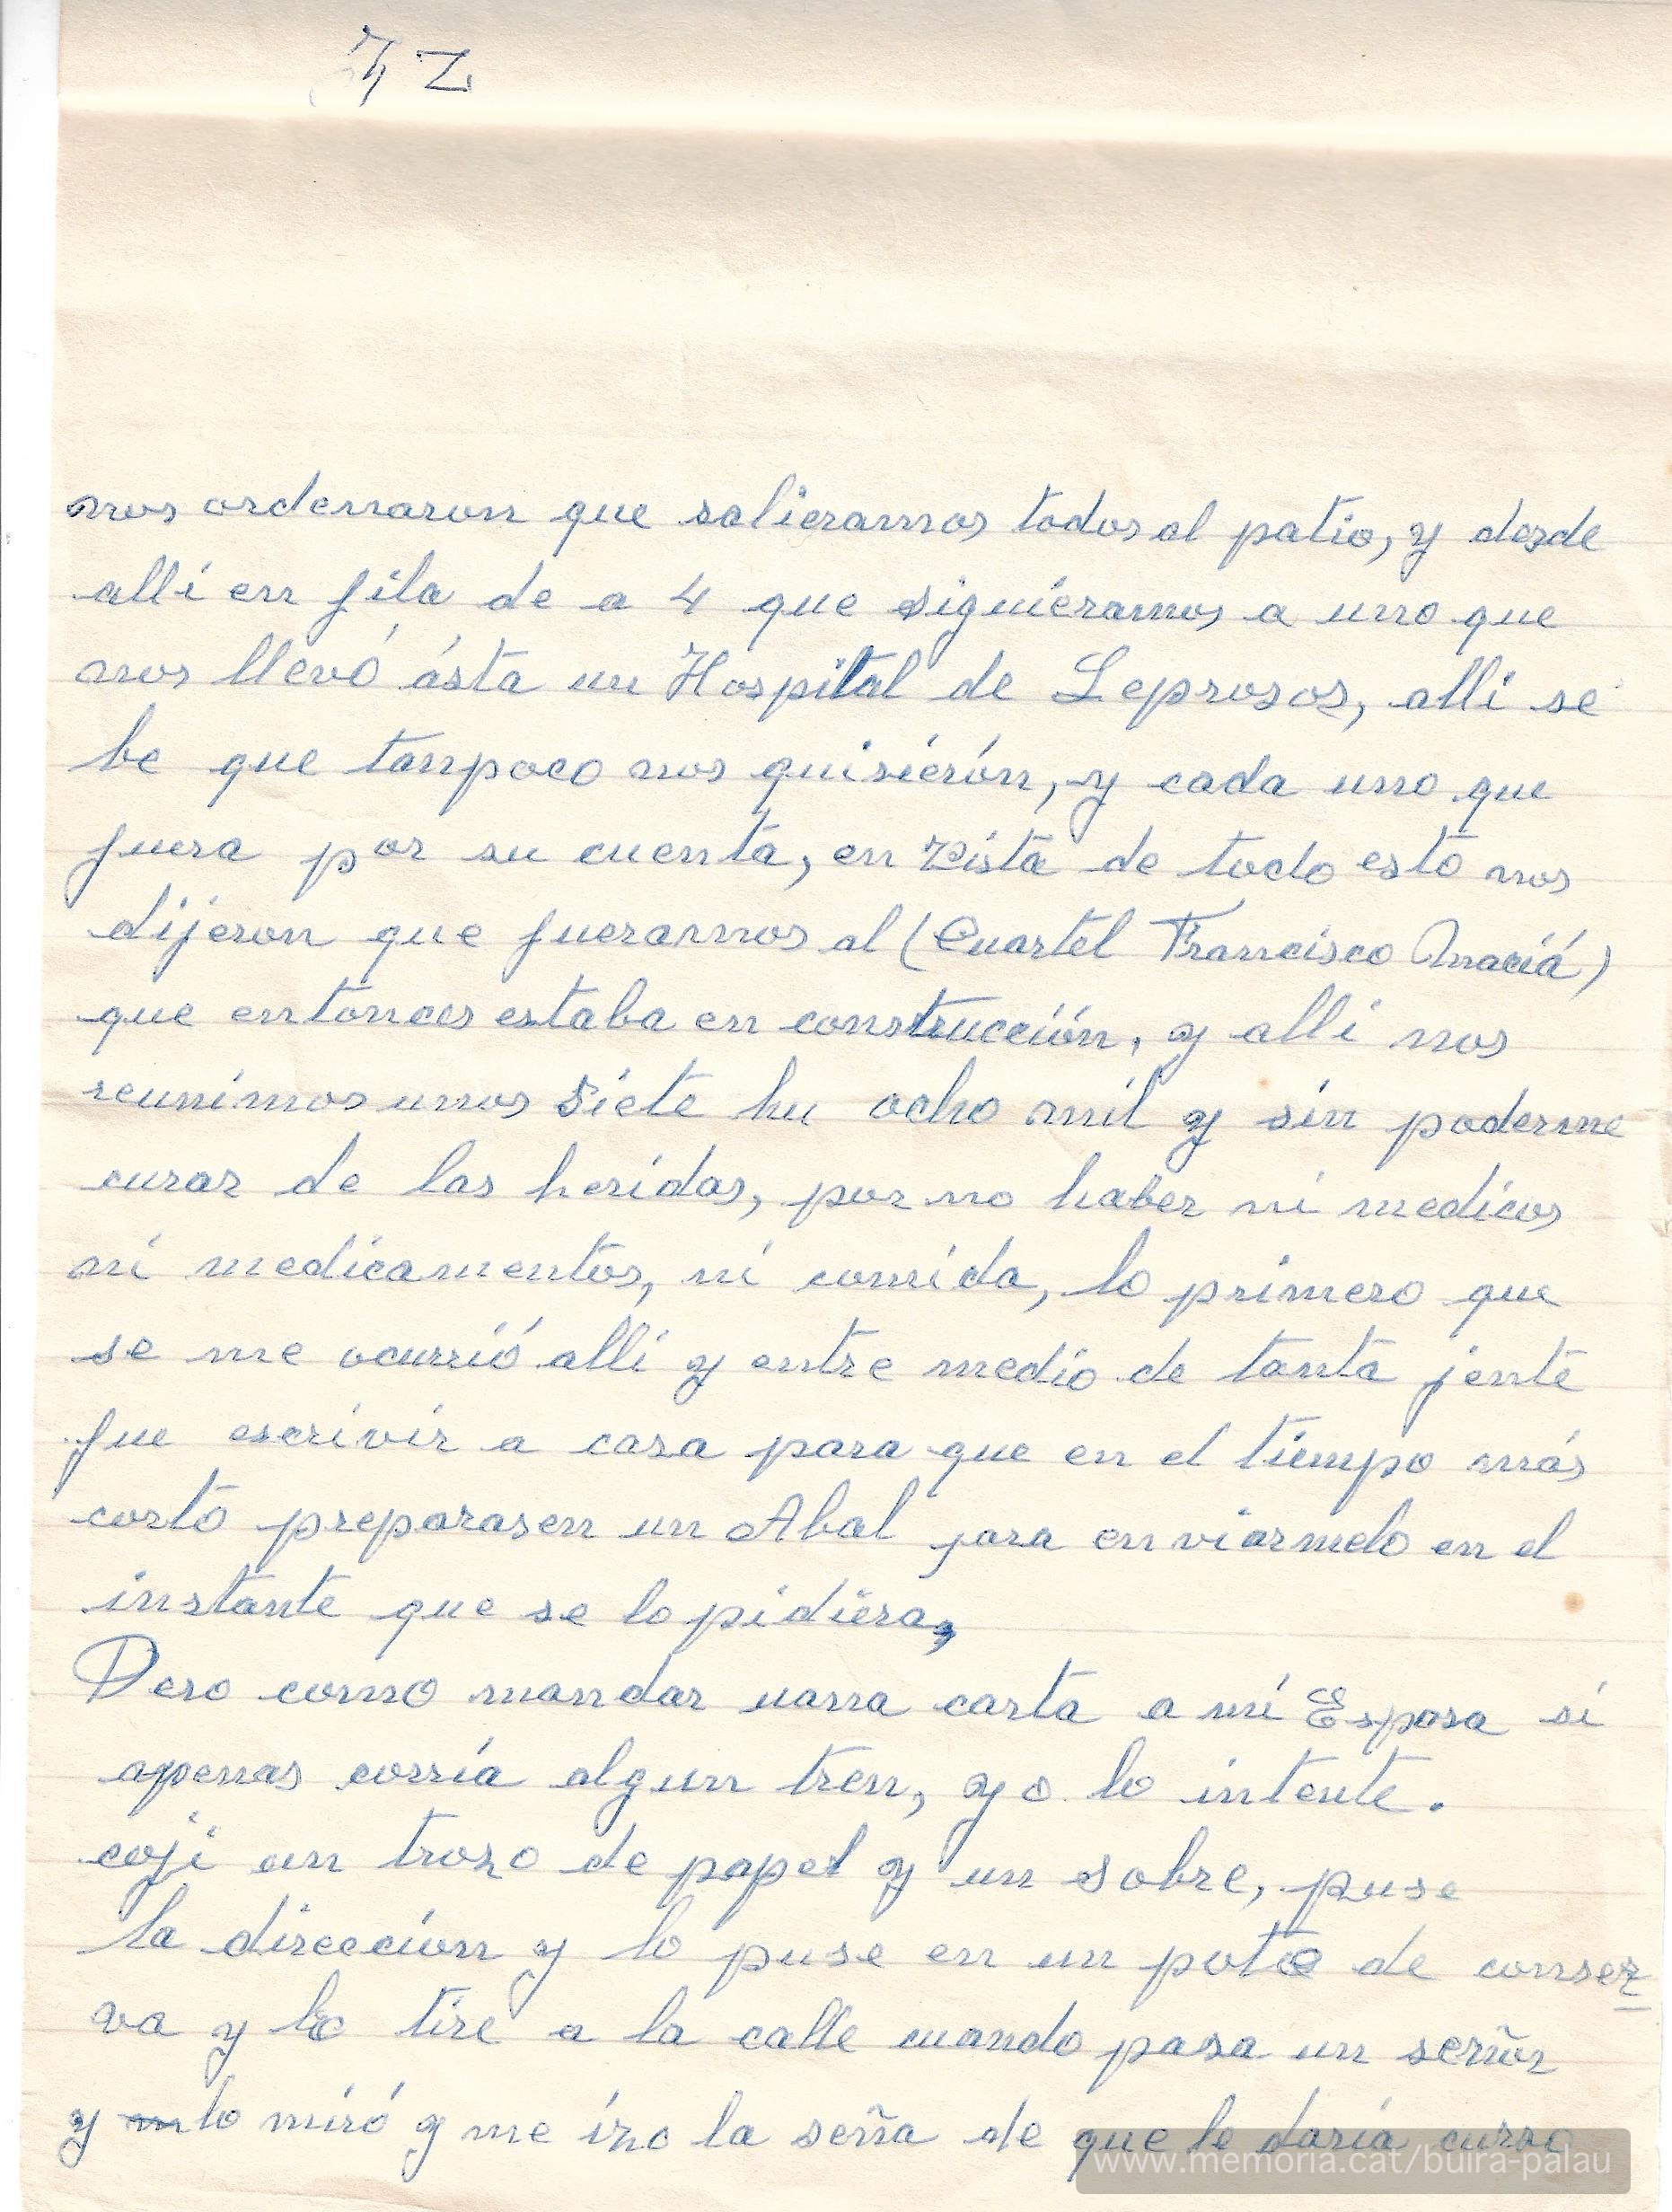 nos ordenaron que salieramos todos al patio, y desde
alli en fila de a 4 que siguieramos a uno que
nos llevó ásta un Hospital de Leprosos, alli se
be que tanpoco nos quisierón, y cada uno que
fuera por su cuenta, en vista de todo esto nos
dijeron que fueramos al (Cuartel Francisco Maciá)
que entonces estaba en construcción, y alli nos
reunimos unos siete hu ocho mil y sin poderme
curar de las heridas, por no haber ni medicos
ni medicamentos, ni comida, lo primero que
se me ocurrió alli y entre medio de tanta jente
fue escrivir a casa para que en el tiempo más
corto preparasen un Abal para enviarmelo en el
instante que se lo pidiera,
Pero como mandar unna carta a mi Esposa si
apenas corría algun tren, yo lo intente.
coji un trozo de papel y un sobre, puse
la direccion y lo puse en un pote de conser
va y lo tire a la calle cuando pasa un señor
y lo miró y me izo la seña de que le daria curso
www.memoria.cat/buira-palau